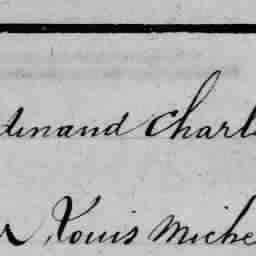 dinand Charl
Louis Miche